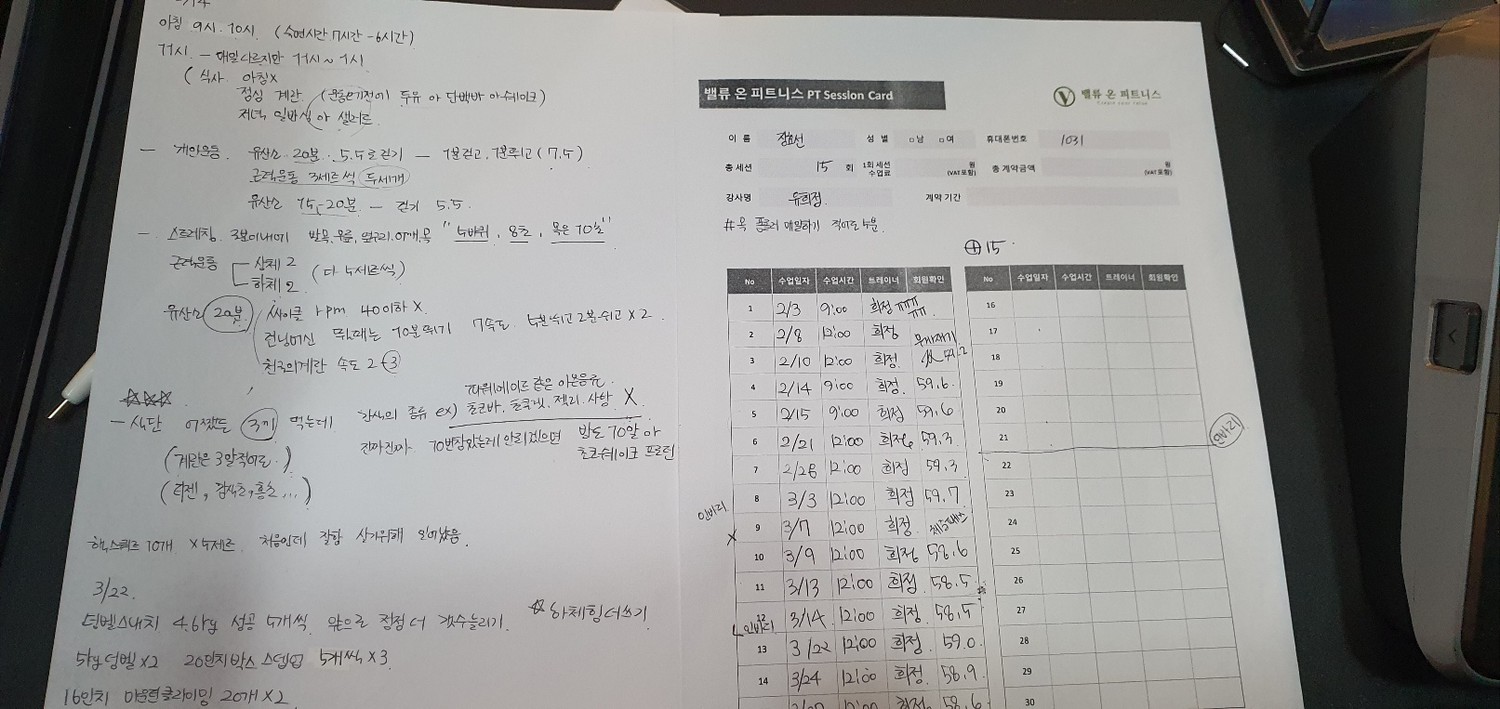 아침 9시. 10시. (수면시간 7시간 - 6시간)
11시. - 매일 다르지만 11시 ~ 1시
( 식사 아침X
점심 계란 (운동하기전에 두유 아 단백바 아 쉐이크)
저녁 일반식 아 샐러드
- 개인운동. 유산소 20분. 5.5로 걷기 - 1분걷고, 1분뛰고 (7.5)
근력운동 3세트씩 두세개
유산소 15-20분 - 걷기 5.5.
- 스트레칭. 3분이내에 발목, 무릎, 허리, 어깨, 목 " 4바퀴, 8초, 목은 10초"
근력운동 상체 2 (다 4세트씩)
하체 2
유산소 20분. 싸이클 rpm 40이하 X
런닝머신 뛸때는 10분뛰기 7속도 4분뛰고 2분쉬고 X 2
천국의계단 속도 2-3
파워에이드 같은 이온음료
- 식단 어쨌든 3끼 먹는데 간식의 종류 ex) 초코바, 초콜렛, 젤리. 사탕 X
진짜진짜 10번참았는데 안되겠으면 밤도 10알 아
초코쉐이크 프로틴
(계란은 3알적어도.)
3/22.
덤벨스내치 4.6kg 성공 5개씩. 앞으로 점점 더 갯수늘리기.
☆ 하체힘더쓰기
5kg덤벨 X2 20인치박스 스텝업 5개씩 X 3
16인치 마운틴클라이밍 20개 X 2
밸류 온 피트니스 PT Session Card
밸류 온 피트니스
이 름 정효선 성 별 □남 □여 휴대폰번호 1031
총 세션 15 회 1회 세션 수업료 원 (VAT 포함) 총 계약금액 원 (VAT 포함)
강사명 유희정 계약 기간
#목 폼롤러 매일하기 적어도 5분.
⊕15.
No 수업일자 수업시간 트레이너 회원확인
1 2/3 9:00 희정 ㅠㅠㅠ
ㅠㅠ
2 2/8 12:00 희정
3 2/10 12:00 희정
4 2/14 9:00 희정 59.6
5 2/15 9:00 희정 59.6
6 2/21 12:00 희정 59.3
7 2/28 12:00 희정 59.3
8 3/3 12:00 희정 59.7
인바디
X
9 3/7 12:00 희정
10 3/9 12:00 희정 58.6
11 3/13 12:00 희정 58.5
12 3/14 12:00 희정 58.5
인바디
13 3/22 12:00 희정 59.0
14 3/24 12:00 희정 58.9
희정 58.6
No 수업일자 수업시간 트레이너 회원확인
16
17
18
19
20
21
인바디
22
23
24
25
26
27
28
29
30